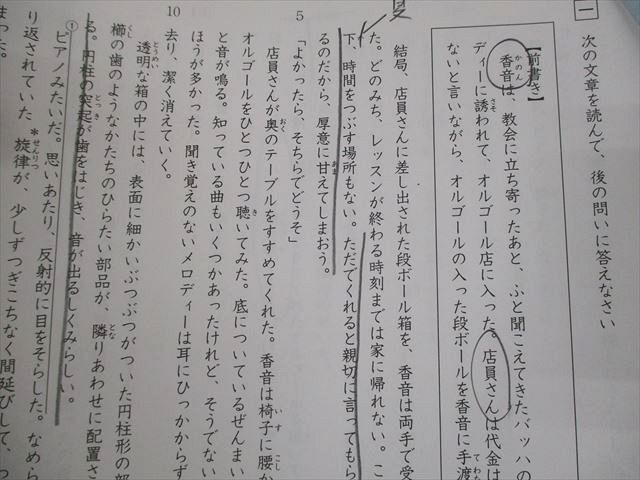 一
次の文章を読んで、後の問いに答えなさい
【前書き】
香音は、教会に立ち寄ったあと、ふと聞こえてきたバッハの
かのん
ディーに誘われて、オルゴール店に入った。店員さんは代金は
さそ
ないと言いながら、オルゴールの入った段ボールを香音に手渡
てわた
夏
結局、店員さんに差し出された段ボール箱を、香音は両手で受
た。どのみち、レッスンが終わる時刻までは家に帰れない。こ
下、時間をつぶす場所もない。ただでくれると親切に言ってもら
5
るのだから、厚意に甘えてしまおう。
「よかったら、そちらでどうぞ」
店員さんが奥のテーブルをすすめてくれた。香音は椅子に腰か
おく
いす
こし
オルゴールをひとつひとつ聴いてみた。底についているぜんまい
き
と音が鳴る。知っている曲もいくつかあったけれど、そうでない
ほうが多かった。聞き覚えのないメロディーは耳にひっかからず
10
去り、潔く消えていく。
透明な箱の中には、表面に細かいぶつぶつがついた円柱形の部
とうめい
櫛の歯のようなかたちのひらたい部品が、隣りあわせに配置さ
くし
とな
る。円柱の突起が歯をはじき、音が出るしくみらしい。
とっき
①ピアノみたいだ。思いあたり、反射的に目をそらした。なめら
り返されていた*旋律が、少しずつぎこちなく間延びして、つ
せんりつ
まった。